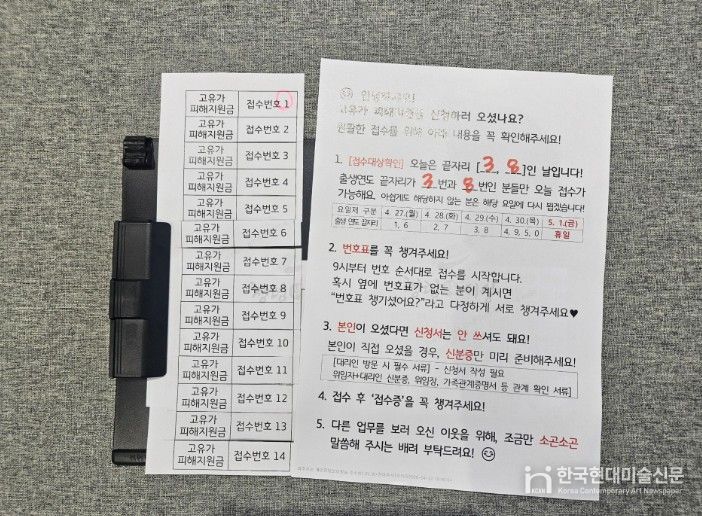 고유가
피해지원금 접수번호 1
고유가
피해지원금 접수번호 2
고유가
피해지원금 접수번호 3
고유가
피해지원금 접수번호 4
고유가
피해지원금 접수번호 5
고유가
피해지원금 접수번호 6
고유가
피해지원금 접수번호 7
고유가
피해지원금 접수번호 8
고유가
피해지원금 접수번호 9
고유가
피해지원금 접수번호 10
고유가
피해지원금 접수번호 11
고유가
피해지원금 접수번호 12
고유가
피해지원금 접수번호 13
고유가
피해지원금 접수번호 14
고유가 피해지원금 신청하러 오셨나요?
원활한 접수를 위해 아래 내용을 꼭 확인해주세요!
1. [접수대상확인] 오늘은 끝자리 [3, 8]인 날입니다!
출생연도 끝자리가 3번과 8번인 분들만 오늘 접수가
가능해요. 아쉽게도 해당하지 않는 분은 해당 요일에 다시 뵙겠습니다!
요일제 구분 4. 27.(월) 4. 28.(화) 4. 29.(수) 4. 30.(목) 5. 1.(금)
출생 연도 끝자리 1, 6 2, 7 3, 8 4, 9, 5, 0 휴일
2. 번호표를 꼭 챙겨주세요!
9시부터 번호 순서대로 접수를 시작합니다.
혹시 옆에 번호표가 없는 분이 계시면
"번호표 챙기셨어요?"라고 다정하게 서로 챙겨주세요♥
3. 본인이 오셨다면 신청서는 안 쓰셔도 돼요!
본인이 직접 오셨을 경우, 신분증만 미리 준비해주세요!
[대리인 방문 시 필수 서류] - 신청서 작성 필요
위임자+대리인 신분증, 위임장, 가족관계증명서 등 관계 확인 서류]
4. 접수 후 '접수증'을 꼭 챙겨주세요!
5. 다른 업무를 보러 오신 이웃을 위해, 조금만 소곤소곤
말씀해 주시는 배려 부탁드려요!
KCAN 한국현대미술신문
Korea Contemporary Art Newspaper